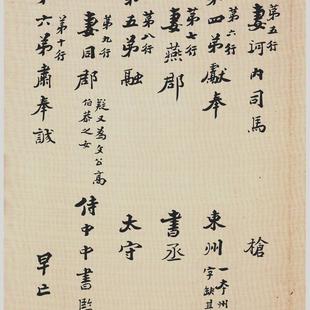 第五行
妻河内司馬
槍
第六行
第四弟獻奉
東州一本州字缺其
第七行
妻燕郡
書丞
第八行
第五弟融
太守
第九行
妻同郡疑又為文公高伯恭之女
侍中中書監
第十行
第六弟肅奉誠
早亡